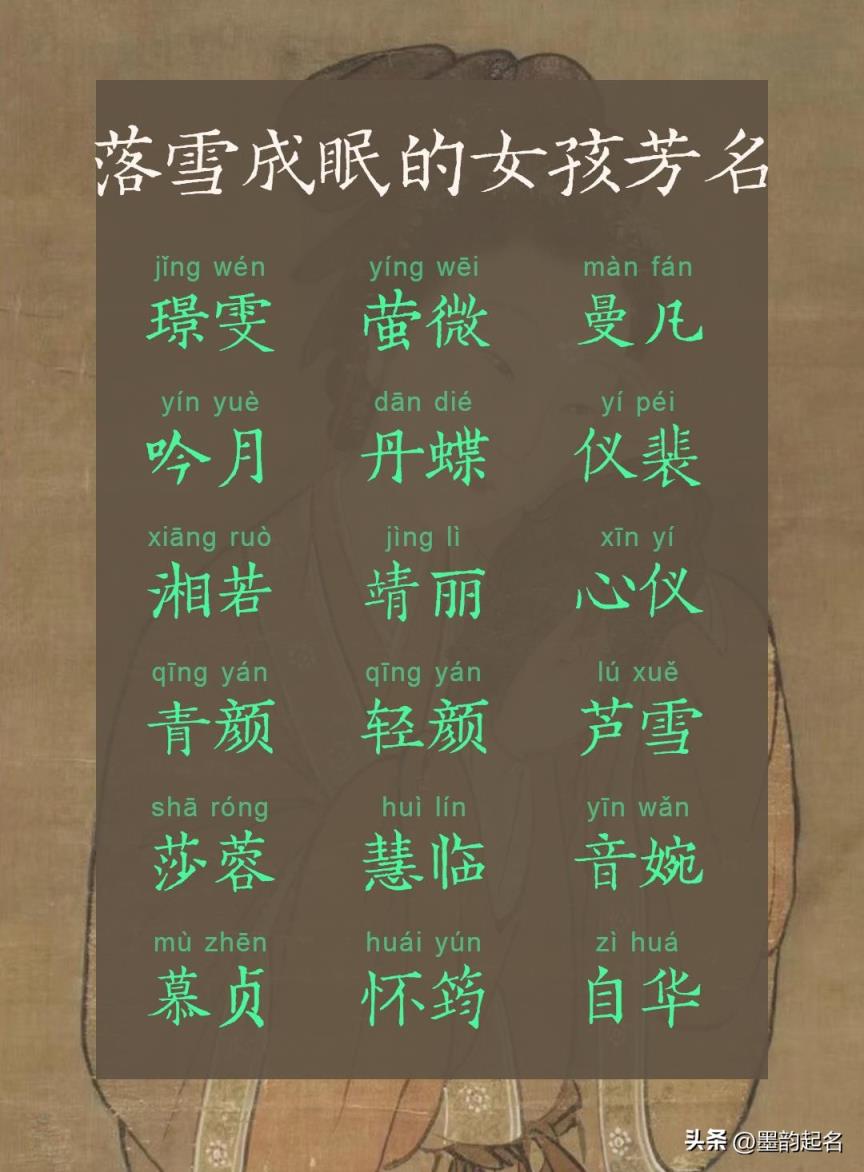 落雪成眠的女孩芳名
jǐng wén yíng wēi màn fán
璟雯 萤微 曼凡
yín yuè dān dié yí péi
吟月 丹蝶 仪裴
xiāng ruò jìng lì xīn yí
湘若 靖丽 心仪
qīng yán qīng yán lú xuě
青颜 轻颜 芦雪
shā róng huì lín yīn wǎn
莎蓉 慧临 音婉
mù zhēn huái yún zì huá
慕贞 怀筠 自华
头条 @墨韵起名